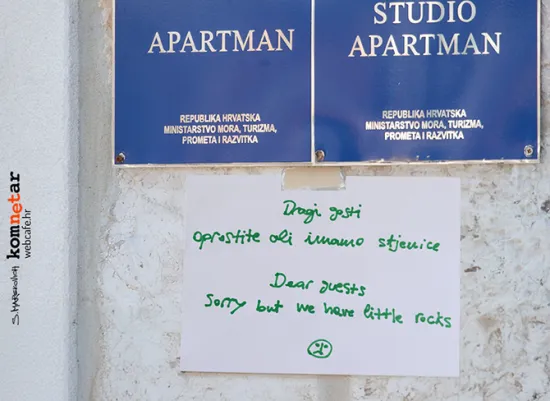 APARTMAN
REPUBLIKA HRVATSKA
MINISTARSTVO MORA, TURIZMA,
PROMETA I RAZVITKA
STUDIO
APARTMAN
REPUBLIKA HRVATSKA
MINISTARSTVO MORA, TURIZMA,
PROMETA I RAZVITKA
Dragi gosti
oprostite ali imamo stjenice
Dear guests
Sorry but we have little rocks
komnetar
webcafe.hr